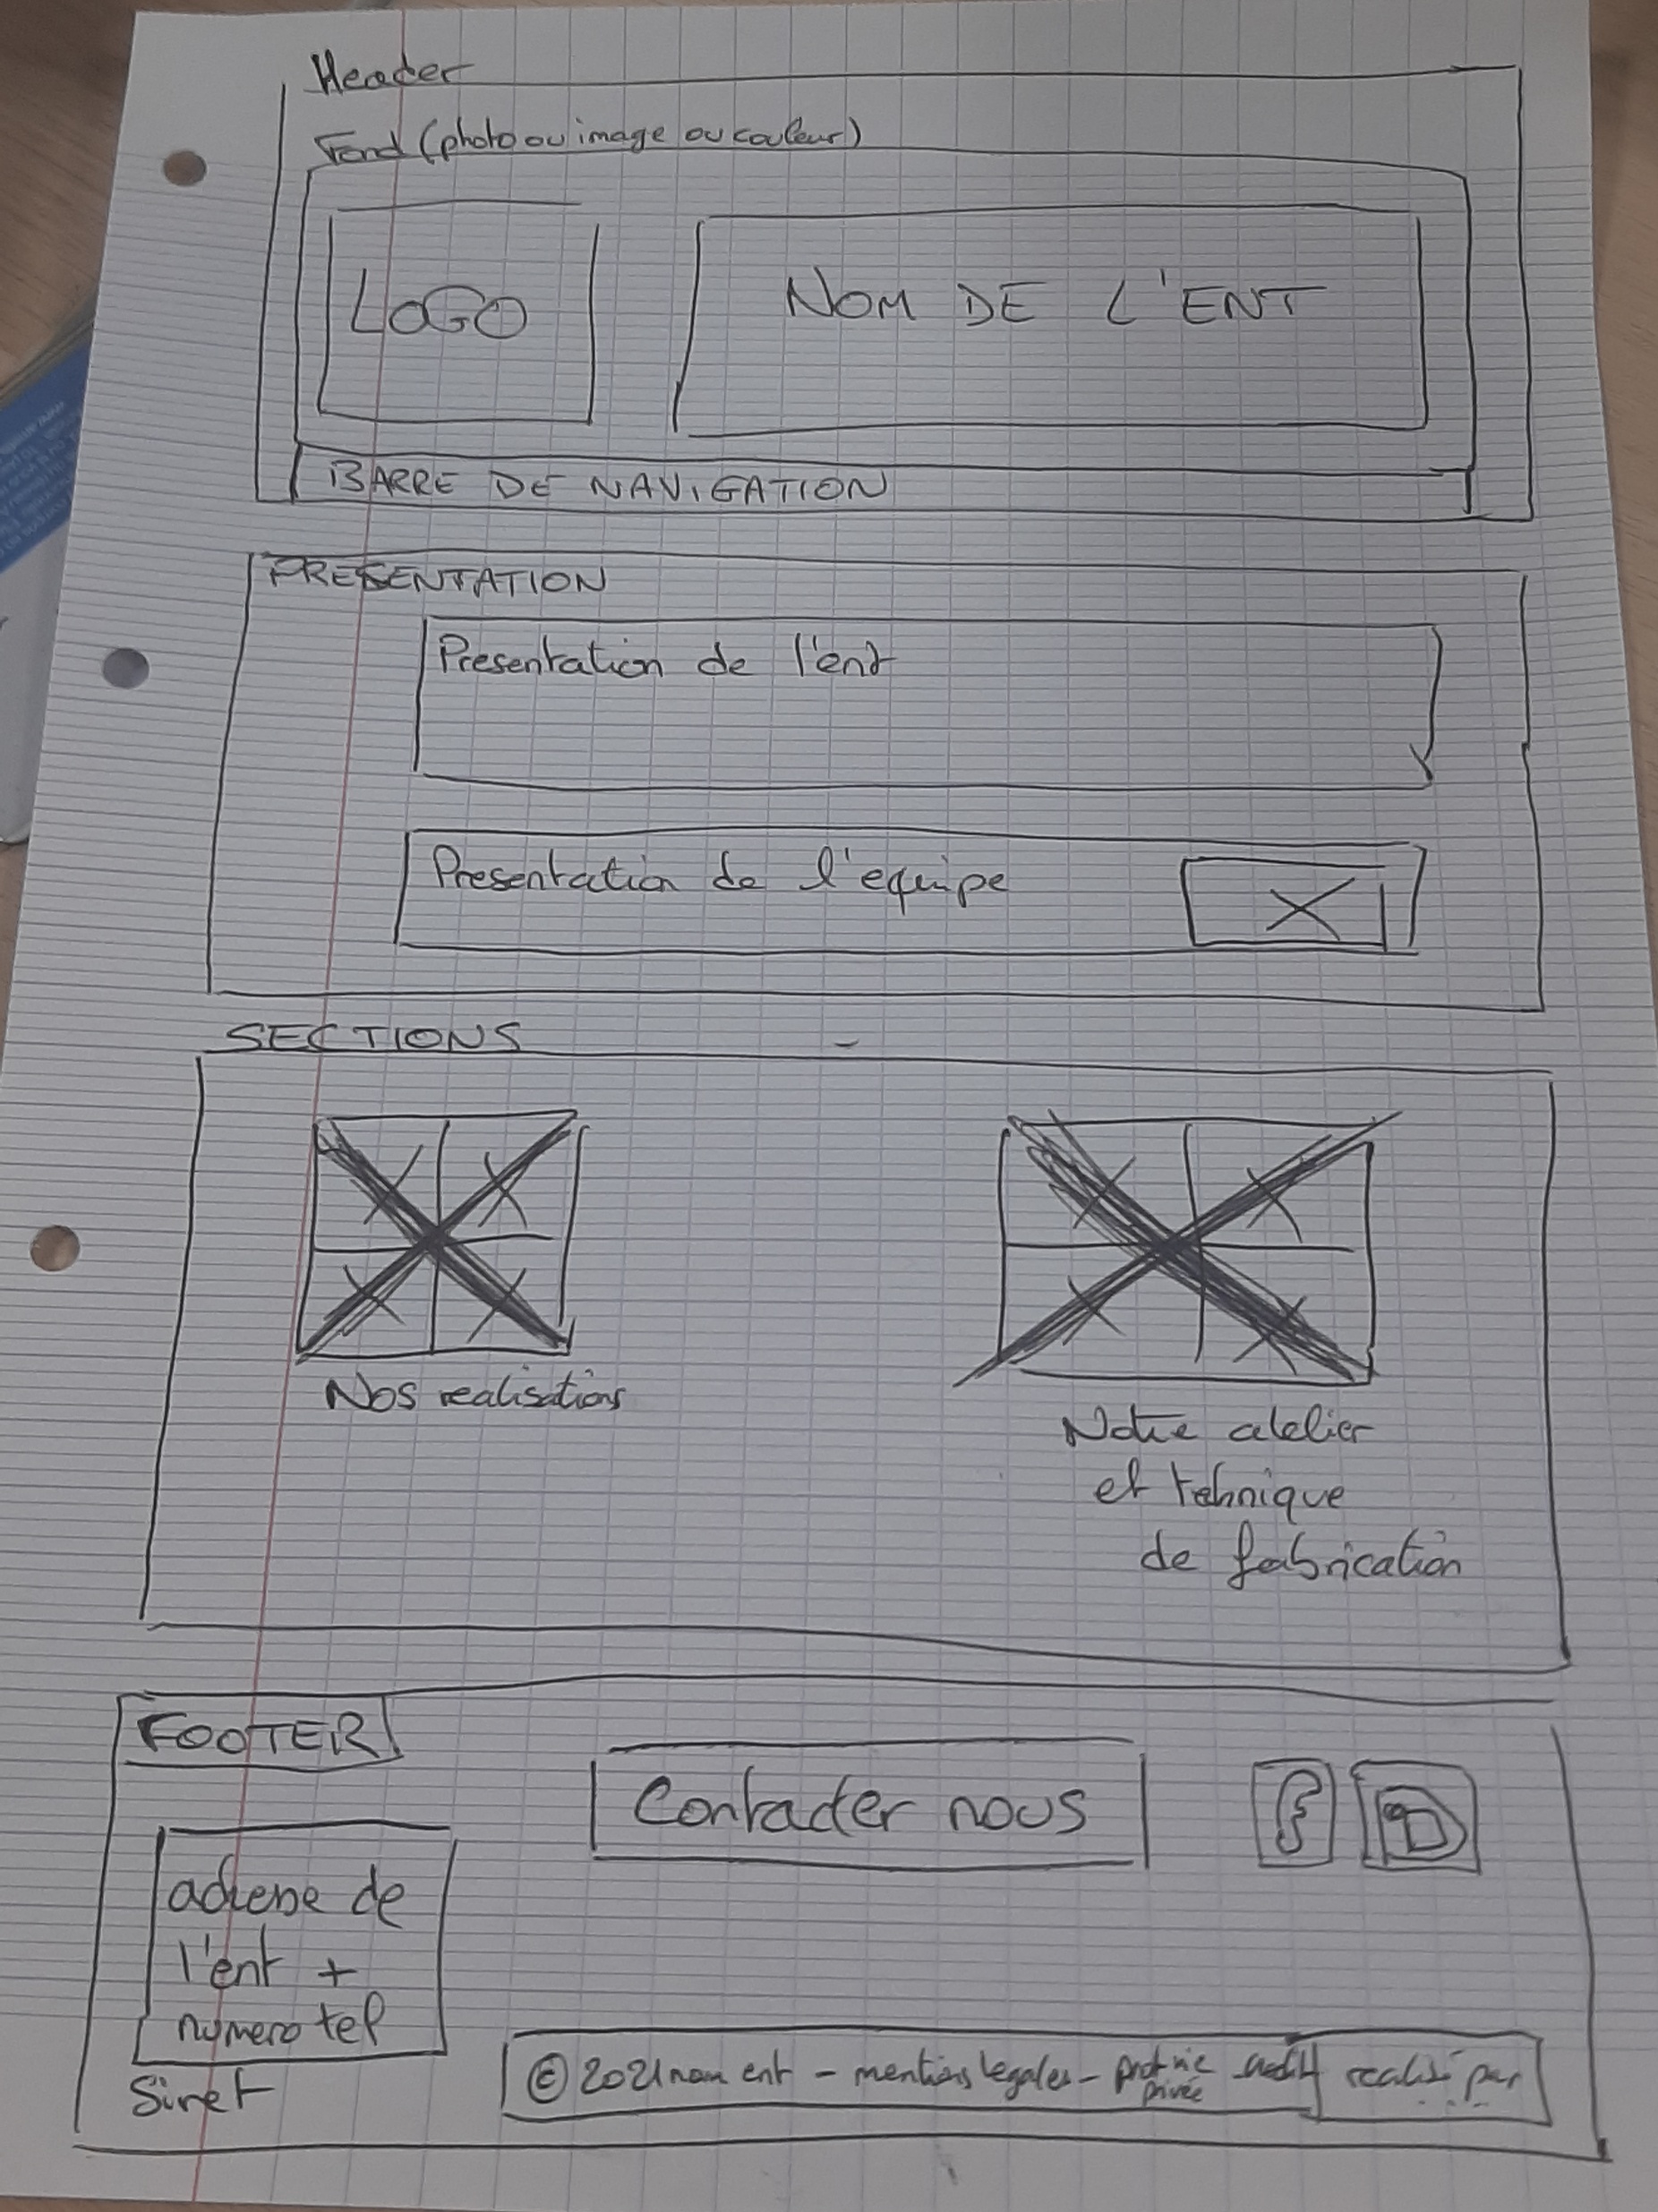 Header
Fond (photo ou image ou couleur)
LOGO
NOM DE L'ENT
BARRE DE NAVIGATION
PRESENTATION
Presentation de l'ent
Presentation de l'equipe
SECTIONS
Nos realisations
Notre atelier
et tehnique
de fabrication
FOOTER
Contacter nous
f
adresse de
l'ent +
numero tel
Siret
© 2021 nom ent - mentions legales - prot vie privée realisé par